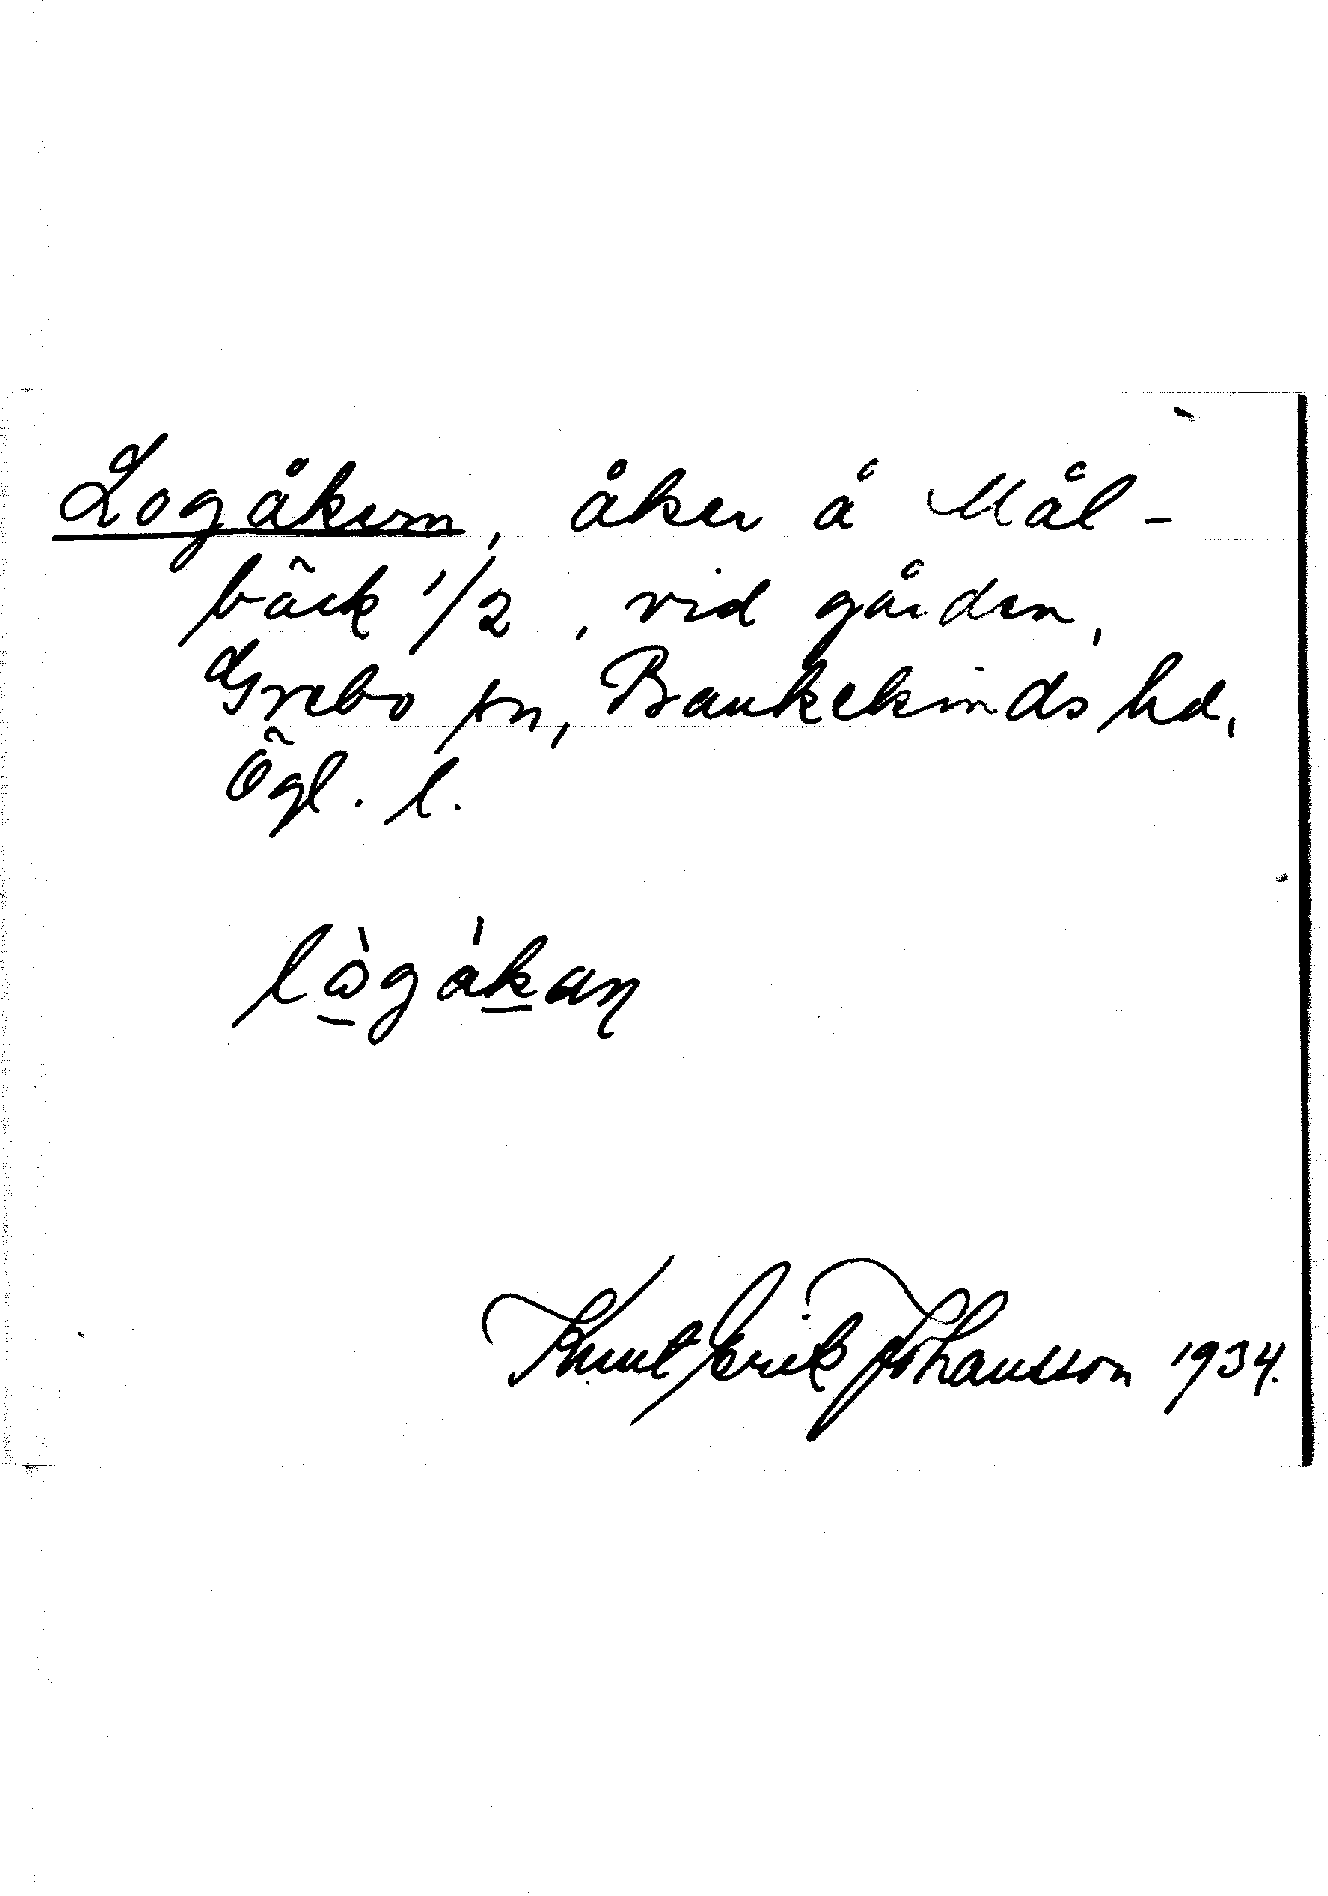 Logåkern, åker å Mål-
bäck 1/2, vid gården,
Grebo sn, Bankekinds hd,
Ögl. l.
lògàkan
Knut Erik Johansson 1934.